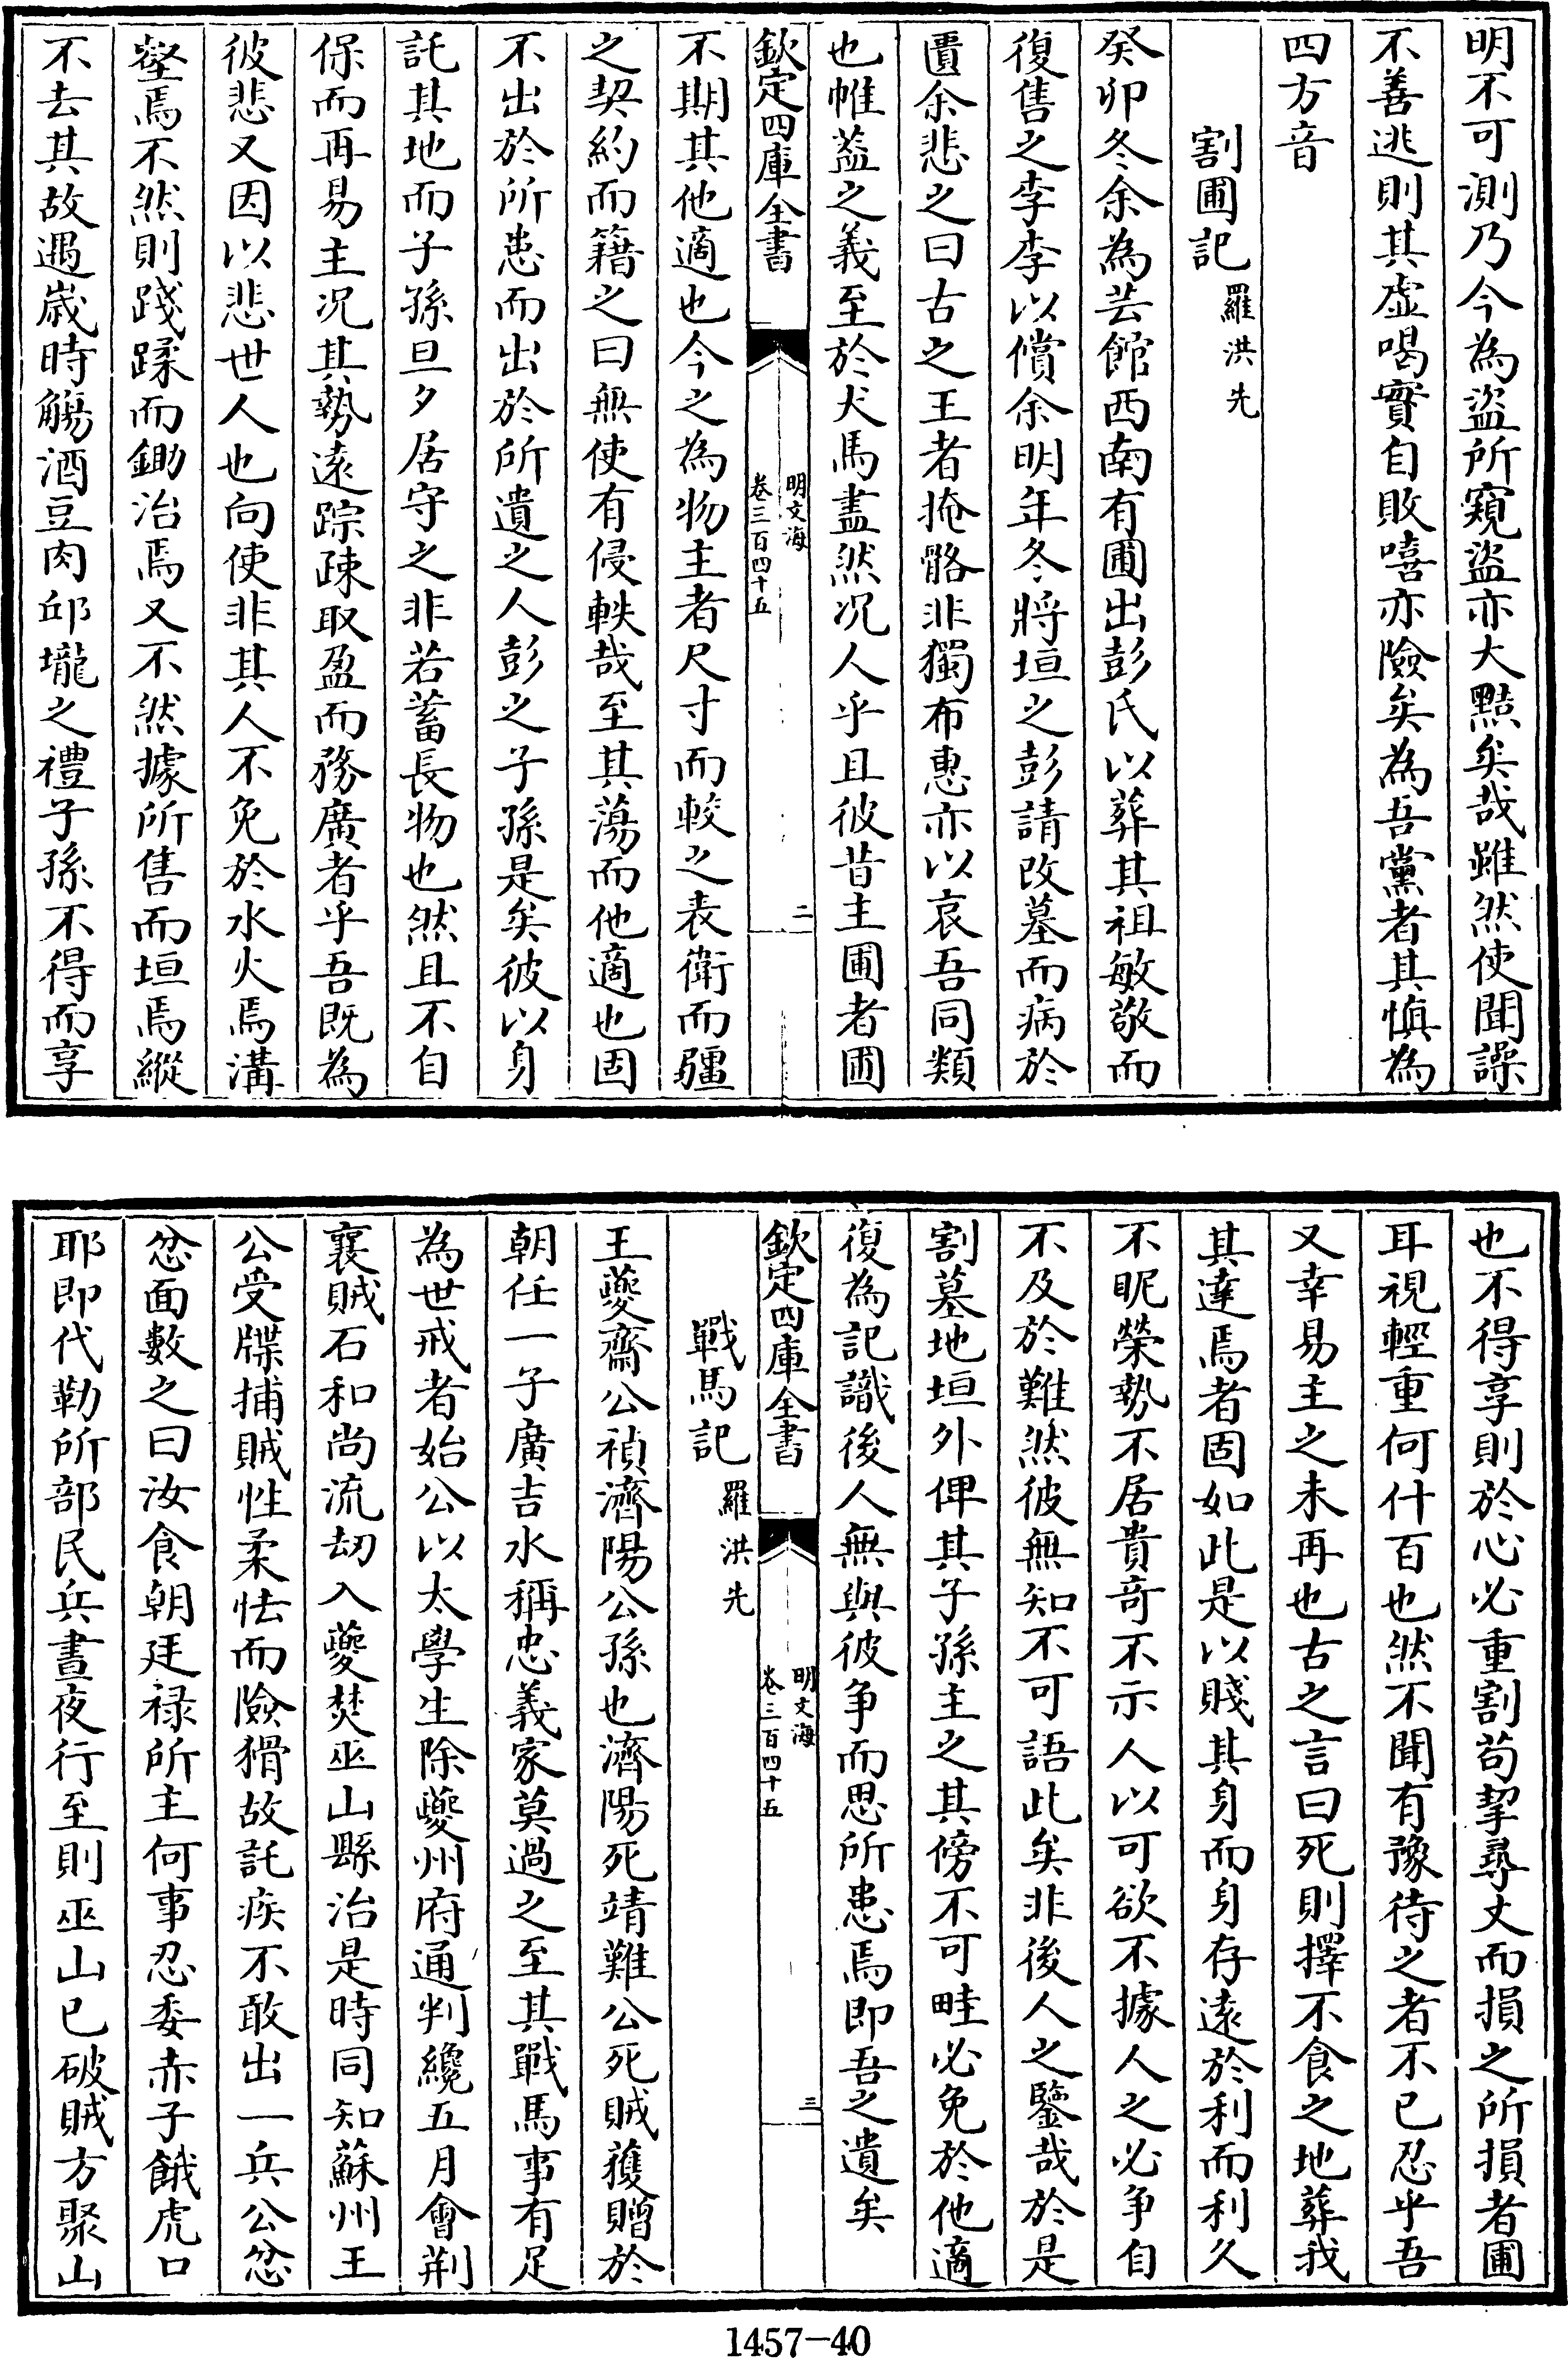 明不可測乃今為盜所窺盜亦大黠矣哉雖然使聞譟
不善逃則其虛喝實自敗嘻亦險矣為吾黨者其慎為
四方音
割圃記 羅洪先
癸卯冬余為芸館西南有圃出彭氏以葬其祖敏敬而
復售之李李以償余明年冬將垣之彭請改墓而病於
匱余悲之曰古之王者掩骼非獨布惠亦以哀吾同類
也帷蓋之義至於犬馬盡然况人乎且彼昔主圃者圃
欽定四庫全書
明文海
卷三百四十五
二
不期其他適也今之為物主者尺寸而較之表衛而疆
之契約而籍之曰無使有侵軼哉至其蕩而他適也固
不出於所患而出於所遺之人彭之子孫是矣彼以身
託其地而子孫旦夕居守之非若蓄長物也然且不自
保而再易主况其勢遠踪疎取盈而務廣者乎吾既為
彼悲又因以悲世人也向使非其人不免於水火焉溝
壑焉不然則踐蹂而鋤治焉又不然據所售而垣焉縱
不去其故遇歲時觴酒豆肉邱壠之禮子孫不得而享
也不得享則於心必重割茍挈尋丈而損之所損者圃
耳視輕重何什百也然不聞有豫待之者不已忍乎吾
又幸易主之未再也古之言曰死則擇不食之地葬我
其達焉者固如此是以賤其身而身存遠於利而利久
不昵榮勢不居貴奇不示人以可欲不據人之必爭自
不及於難然彼無知不可語此矣非後人之鑒哉於是
割墓地垣外俾其子孫主之其傍不可畦必免於他適
復為記識後人無與彼爭而思所患焉即吾之遺矣
欽定四庫全書
明文海
卷三百四十五
三
戰馬記 羅洪先
王夔齋公禎濟陽公孫也濟陽死靖難公死賊獲贈於
朝任一子廣吉水稱忠義家莫過之至其戰馬事有足
為世戒者始公以太學生除夔州府通判纔五月會荆
襄賊石和尚流刼入夔焚巫山縣治是時同知蘇州王
公受牒捕賊性柔怯而險猾故託疾不敢出一兵公忿
忿面數之曰汝食朝廷祿所主何事忍委赤子餓虎口
耶即代勒所部民兵晝夜行至則巫山已破賊方聚山
1457-40